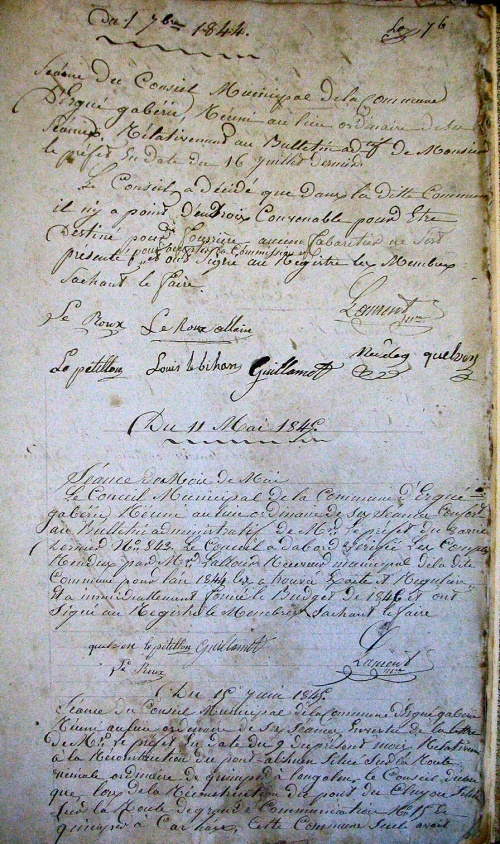 Du 1 7bre 1844. 76
Séance du Conseil Municipal de la Commune
D'Ergué gabéric, Réuni au lieu ordinaire de ses
Séances, Relativement au Bulletin adtif de Monsieur
le préfet En date du 16 Juillet dernier
Le Conseil a décidé que dans la ditte Commune
il n'y a point d'endroix Convenable pour Etre
Destiné pour fourrière aucun Cabaretier ne s'est
présenté pour accepter la Commission et
ont Signé au Registre les Membres
Sachant le faire.
Le Roux Le Roux allain Lamont mre
Le pétillon Louis le bihan Guillamot quelven
Du 11 Mai 1845.
Séance du Mois de Mai
Le Conseil Municipal de la Commune d'Ergué-
gabéric, Réuni au lieu ordinaire de ses Séances Conformt
au Bulletin administratif de Mr. le préfet du
Dernier No. 842. Le Conseil a d'abord vérifié les Comptes
Rendus par Mr. Receveur municipal de la dite
Commune pour l'an 1844 les a trouvé Exacte et Régulier,
et a immédiatement formé le Budget de 1846 et ont
Signé au Registre le Membres Sachant le faire
quelven le pétillon Guillamot
Le Roux Lamont mre
Du 15 Juin 1845
Séance du Conseil Municipal de la Commune d'Ergué gabéric
Réuni au lieu ordinaire de ses Séances En vertu de la lettre
de Mr. le préfet En date du 9 du présent mois, Relative
à la Réconstruction du pont Situé sur la Route
vicinale ordinaire de quimper à Coray, le Conseil déclare
que lors de la Réconstruction du pont du Cleuyou Situé
sur la Route de grande Communication No. 15 de
quimper à Carhaix, Cette Commune Seule avait